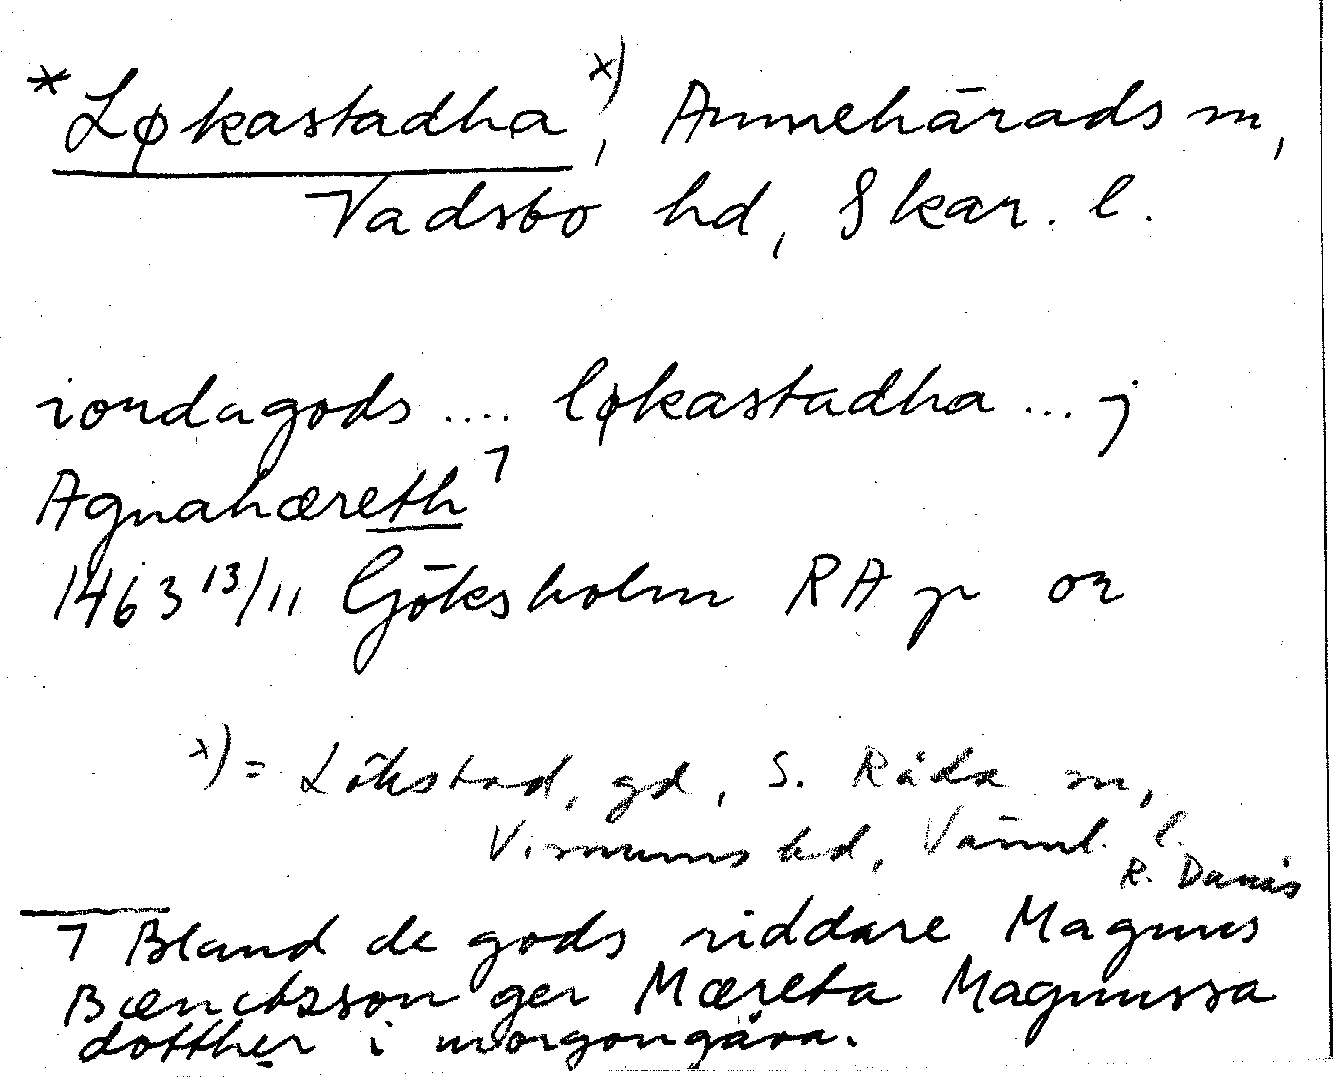 * Løkastadha x), Amnehārads sn,
Vadsbo hd, Skar. l.
iordagods .... løkastadha ... j
Agnahæreth ⁊
1463 13/11 Gjöksholm RA p or
x) = Lökstad, gd, S. Råda sn,
Visnums hd, Värml. l.
R. Danås
⁊ Bland de gods riddare Magnus
Bænctzson ger Mæreta Magnussa
dotther i morgongåva.